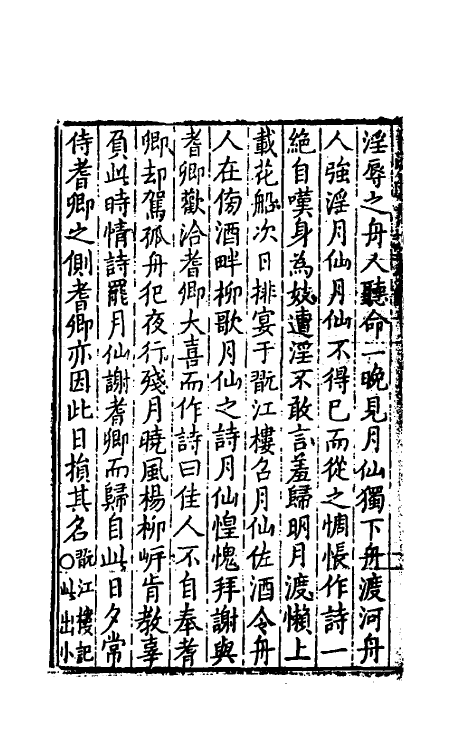 淫辱之舟人聽命一晚見月仙獨下舟渡河舟
人強淫月仙月仙不得已而從之惆悵作詩一
絶自嘆身為妓遭淫不敢言羞歸明月渡懶上
載花船次日排宴于翫江樓召月仙佐酒令舟
人在傍酒畔柳歌月仙之詩月仙惶愧拜謝與
耆卿歡洽耆卿大喜而作詩曰佳人不自奉耆
卿却駕孤舟犯夜行殘月曉風楊柳岸肯教辜
負此時情詩罷月仙謝耆卿而歸自此日夕常
侍耆卿之側耆卿亦因此日損其名○翫江樓記
此出小